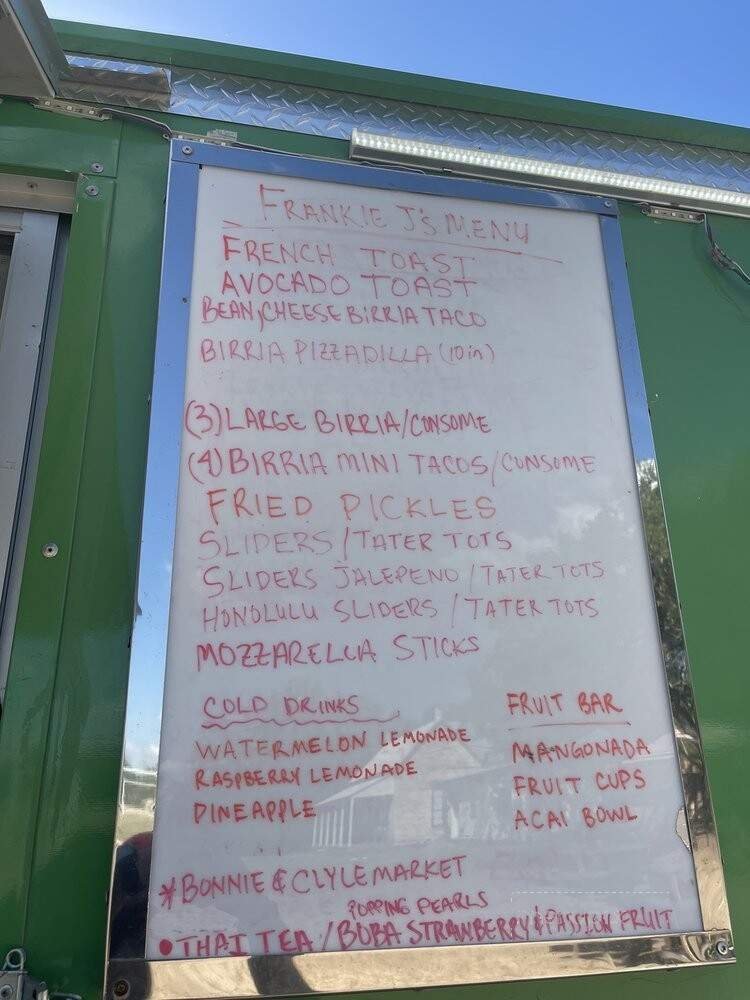 FRANKIE J'S MENU
FRENCH TOAST
AVOCADO TOAST
BEAN, CHEESE BIRRIA TACO
BIRRIA PIZZADILLA (10in)
(3) LARGE BIRRIA/CONSOME
(4) BIRRIA MINI TACOS/CONSOME
FRIED PICKLES
SLIDERS/TATER TOTS
SLIDERS JALEPENO/TATER TOTS
HONOLULU SLIDERS/TATER TOTS
MOZZARELLA STICKS
COLD DRINKS
WATERMELON LEMONADE
RASPBERRY LEMONADE
PINEAPPLE
FRUIT BAR
MANGONADA
FRUIT CUPS
ACAI BOWL
*BONNIE & CLYLE MARKET
POPPING PEARLS
•THAI TEA/BOBA STRAWBERRY & PASSION FRUIT